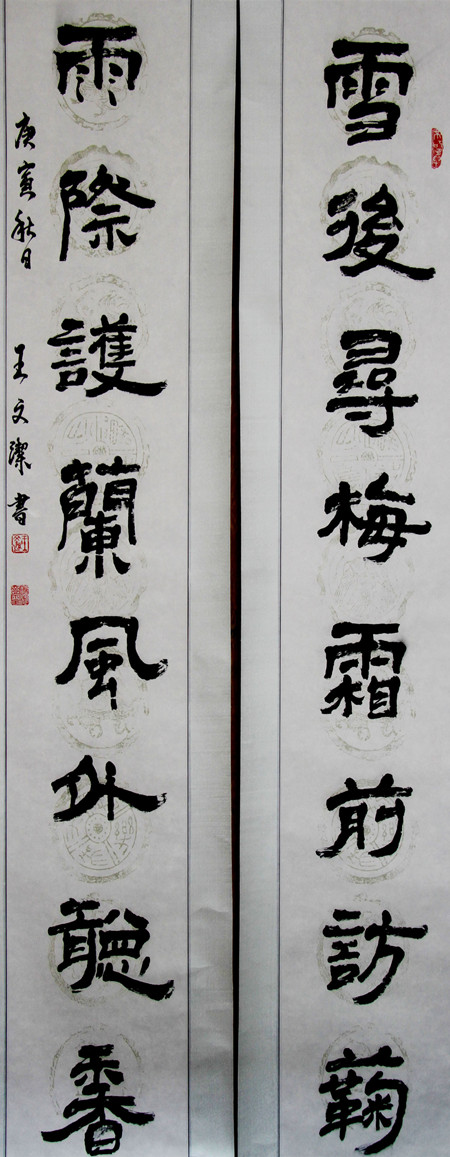 雪後尋梅霜前訪蘜
雨際護蘭風外聽香
庚寅秋日 王文書